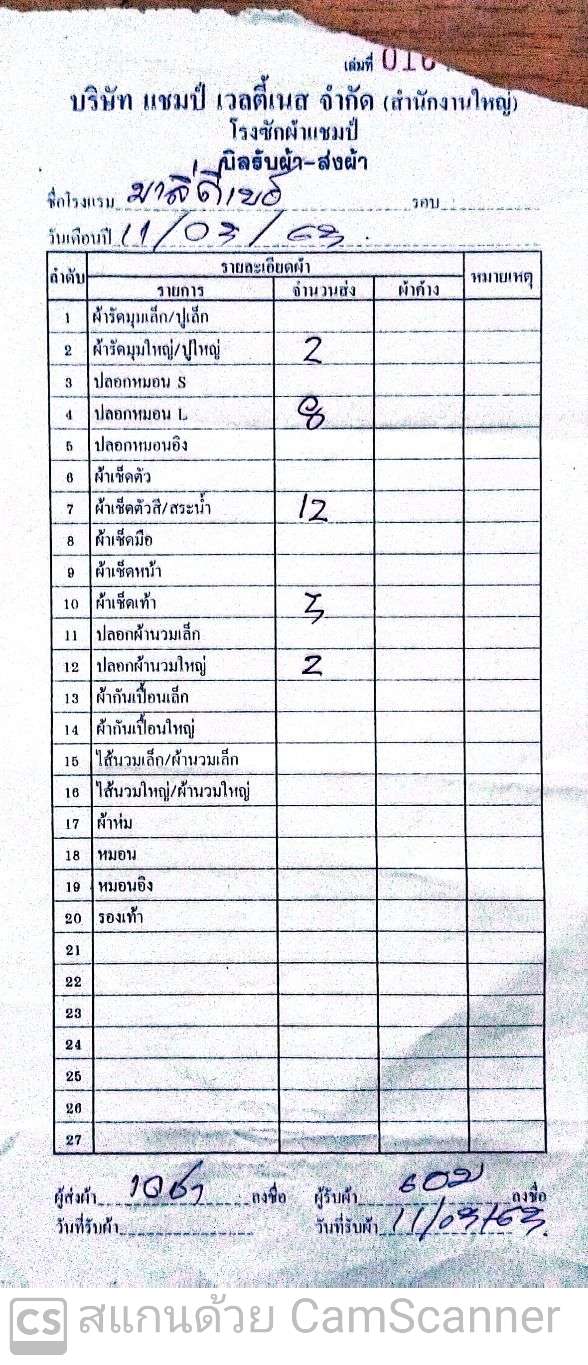 เล่มที่ 016
บริษัท แชมป์ เวลตี้เนส จำกัด (สำนักงานใหญ่)
โรงซักผ้าแชมป์
บิลรับผ้า-ส่งผ้า
ชื่อโรงแรม รอบ
วันเดือนปี 11/03/63
ลำดับ รายละเอียดผ้า หมายเหตุ
รายการ จำนวนส่ง ผ้าค้าง
1 ผ้ารัดมุมเล็ก/ปูเล็ก
2 ผ้ารัดมุมใหญ่/ปูใหญ่ 2
3 ปลอกหมอน S
4 ปลอกหมอน L 8
5 ปลอกหมอนอิง
6 ผ้าเช็ดตัว
7 ผ้าเช็ดตัวสี/สระน้ำ 12
8 ผ้าเช็ดมือ
9 ผ้าเช็ดหน้า
10 ผ้าเช็ดเท้า 3
11 ปลอกผ้านวมเล็ก
12 ปลอกผ้านวมใหญ่ 2
13 ผ้ากันเปื้อนเล็ก
14 ผ้ากันเปื้อนใหญ่
15 ไส้นวมเล็ก/ผ้านวมเล็ก
16 ไส้นวมใหญ่/ผ้านวมใหญ่
17 ผ้าห่ม
18 หมอน
19 หมอนอิง
20 รองเท้า
21
22
23
24
25
26
27
ผู้ส่งผ้า ลงชื่อ ผู้รับผ้า ลงชื่อ
วันที่รับผ้า วันที่รับผ้า 11/03/63
CS สแกนด้วย CamScanner